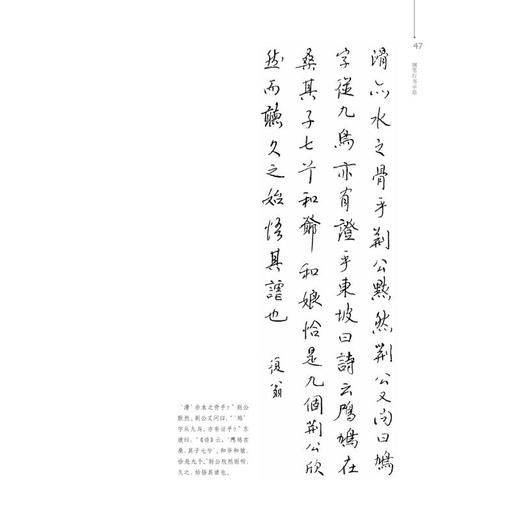 47
钢笔行书字帖
滑亦水之骨乎荆公默然荆公又问曰鳩
字從九鳥亦有證乎東坡曰詩云鳲鳩在
桑其子七兮和爺和娘恰是九個荆公欣
然而聽久之始悟其謔也
復翁
‘滑’亦水之骨乎？”荆公
默然。荆公又问曰：“‘鸠’
字从九鸟，亦有证乎？”东
坡曰：“《诗》云：‘鸤鸠在
桑，其子七兮’，和爷和娘，
恰是九个。”荆公欣然而听，
久之，始悟其谑也。